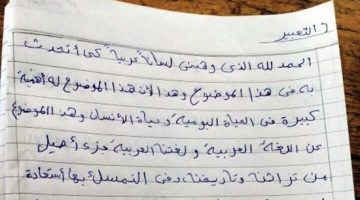 التعبير
الحمد لله الذى وهبنى لساناً عربية كى أتحدث
به فى هذا الموضوع وهذا لأن هذا الموضوع له أهمية
كبيرة فى الحياة اليومية وحياة الأنسان وهذ الموضوع
عن اللغة العربية ولغتنا العربية جزء أصيل
من تراثنا وتاريخنا وفى التمسك بها أستعادة